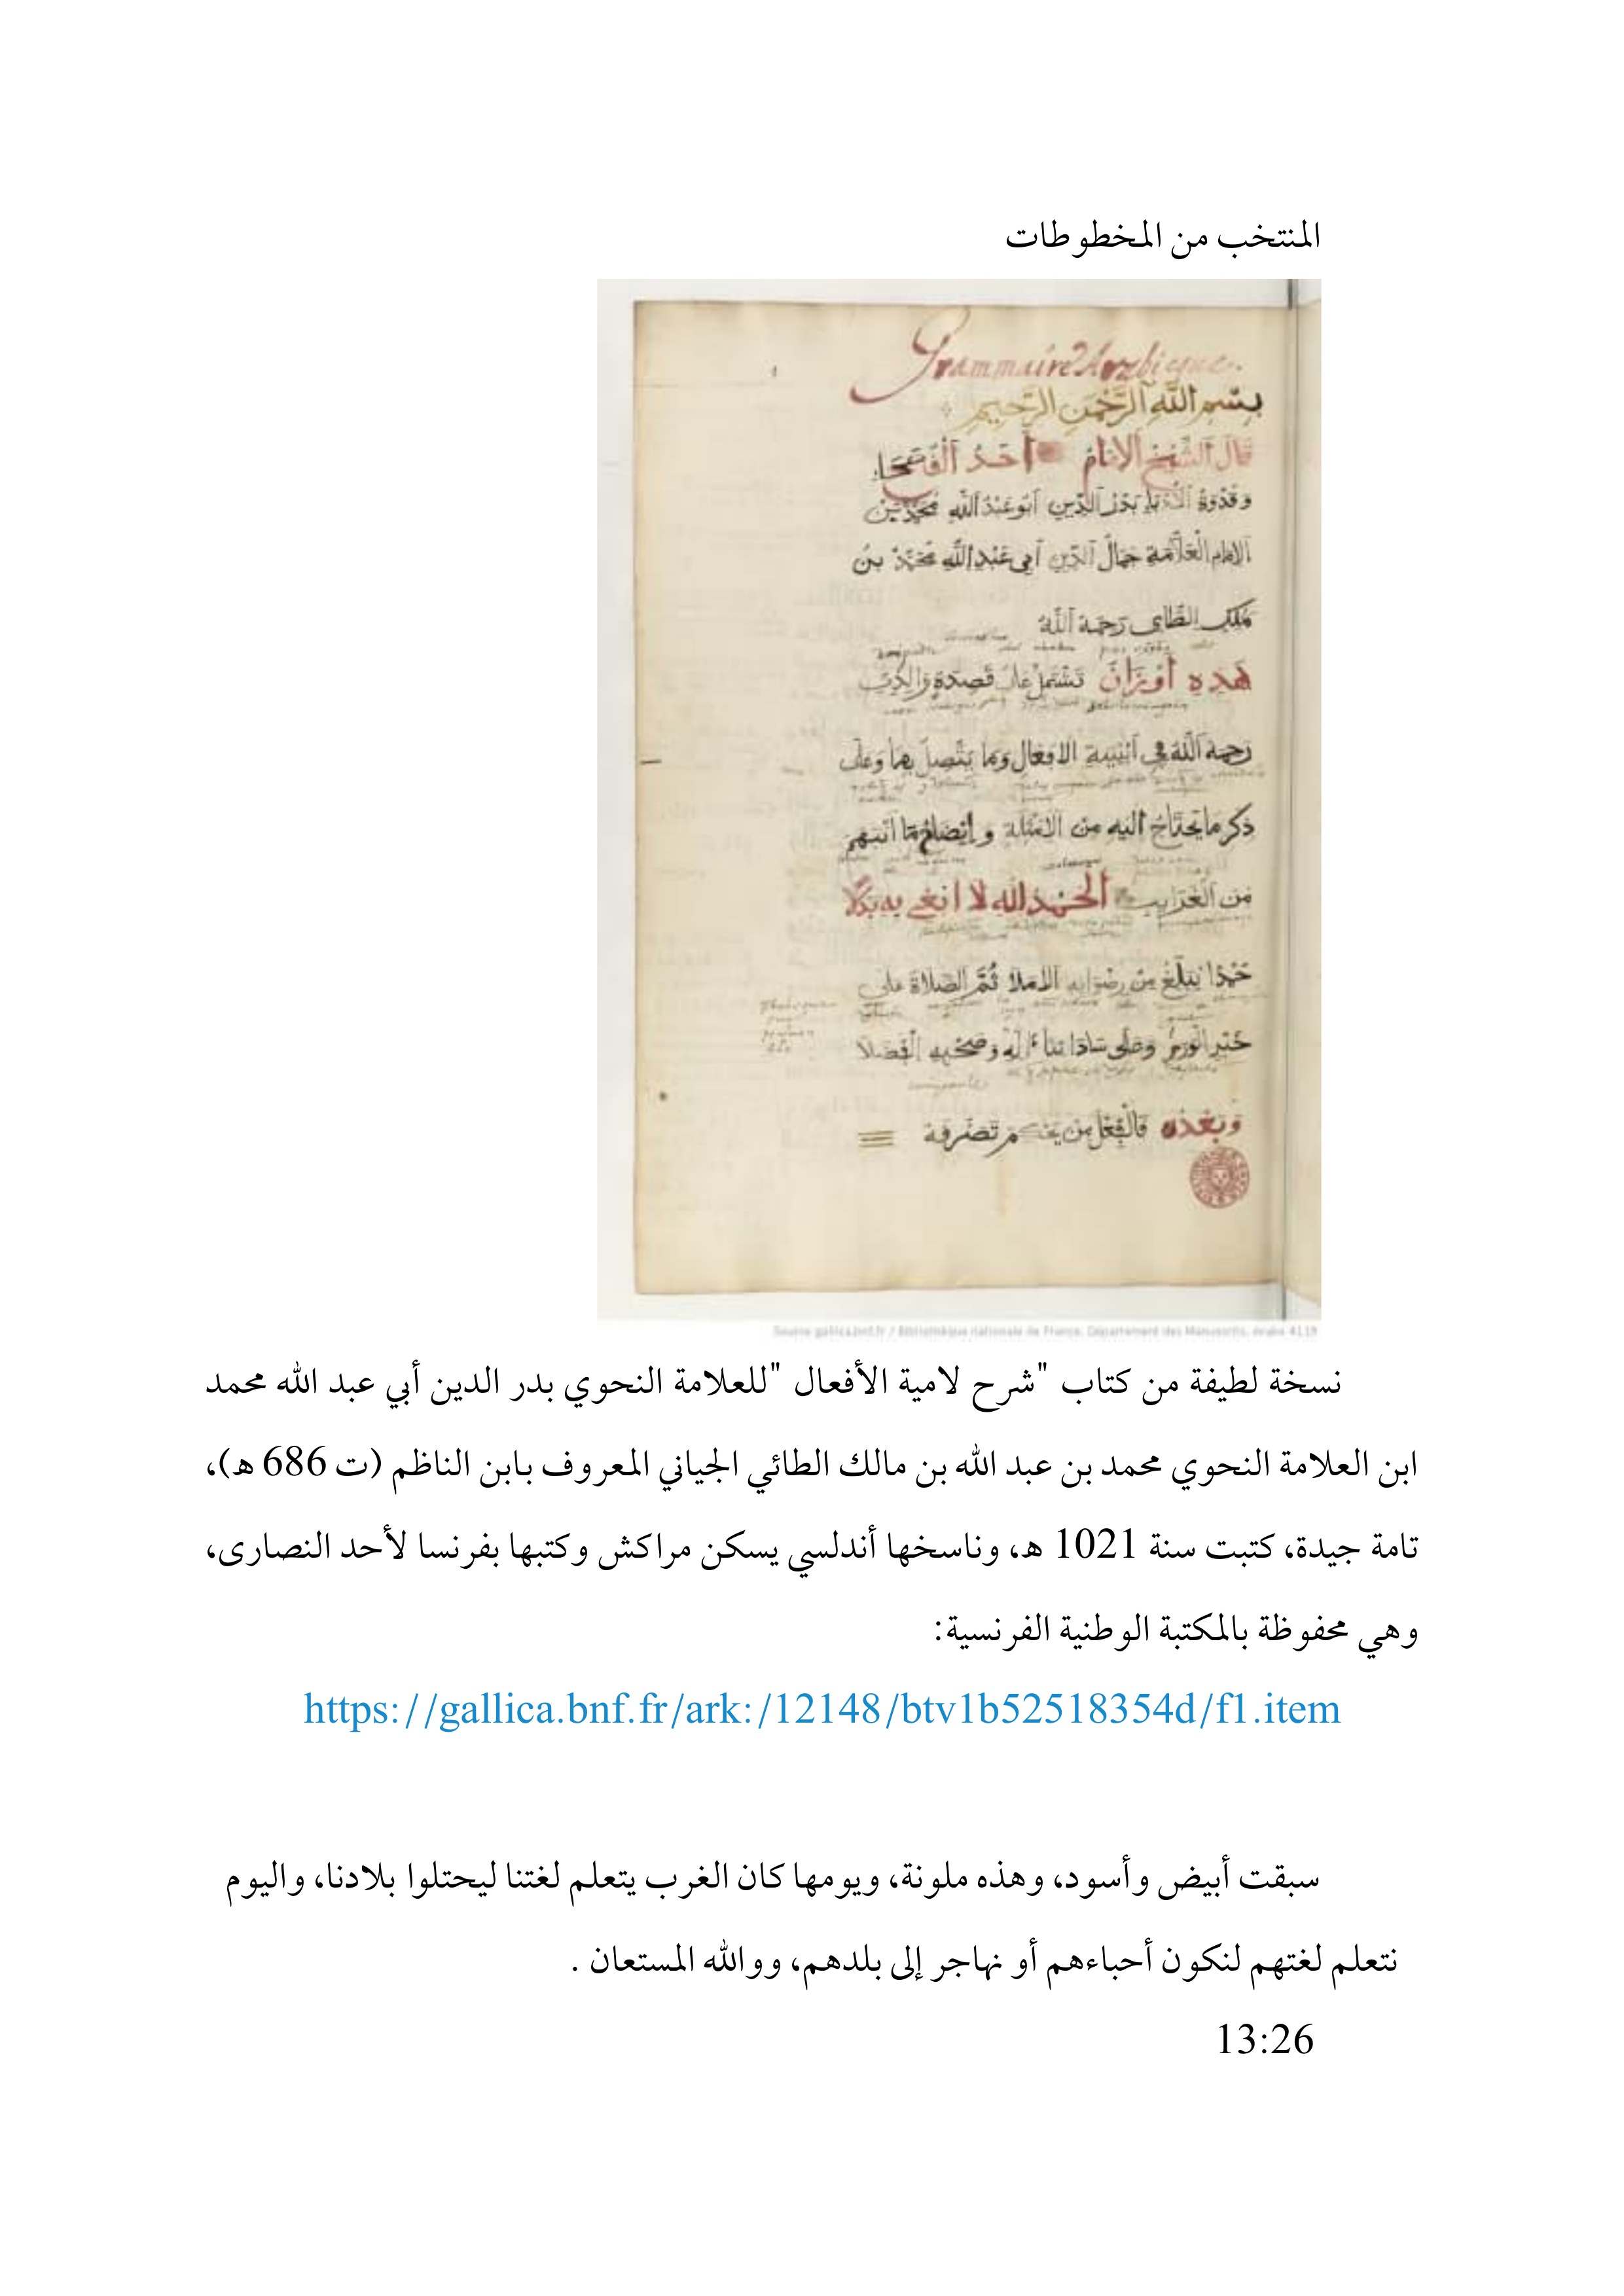 المنتخب من المخطوطات
Grammaire Arabicque.
بسم الله الرحمن الرحيم
قال الشيخ الامام احد الفصحا
وقدوة الادبا بدر الدين ابو عبد الله محمد بن
الامام العلامة جمال الدين ابي عبد الله محمد بن
ملك الطاى رحمة الله
هذه اوزان تشتمل على قصدة والدى
رحمة الله في ابنية الافعال وما يتصل بها وعلى
ذكر ما يحتاج اليه من الامثلة و إيضاح ما انبهم
من الغرايب الحمد لله لا ابغي به بدلا
حمدا يبلغ من رضوانه الاملا ثم الصلاة على
خير الورى وعلى ساداتنا آله وصحبه الفضلا
وبعده فالفعل من يحكم تصرفه
Source gallica.bnf.fr / Bibliothèque nationale de France. Département des Manuscrits. Arabe 4119
نسخة لطيفة من كتاب "شرح لامية الأفعال "للعلامة النحوي بدر الدين أبي عبد الله محمد
ابن العلامة النحوي محمد بن عبد الله بن مالك الطائي الجياني المعروف بابن الناظم (ت 686 هـ)،
تامة جيدة، كتبت سنة 1021 هـ، وناسخها أندلسي يسكن مراكش وكتبها بفرنسا لأحد النصارى،
وهي محفوظة بالمكتبة الوطنية الفرنسية:
https://gallica.bnf.fr/ark:/12148/btv1b52518354d/f1.item
سبقت أبيض وأسود، وهذه ملونة، ويومها كان الغرب يتعلم لغتنا ليحتلوا بلادنا، واليوم
نتعلم لغتهم لنكون أحباءهم أو نهاجر إلى بلدهم، ووالله المستعان .
13:26